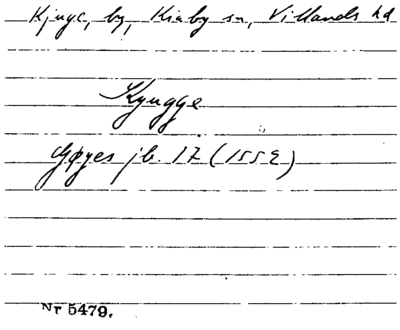 Kjuge, by, Kiaby sn, Villands hd
Kyugge
Gøyes jb. 17 (1552)
Nr 5479.